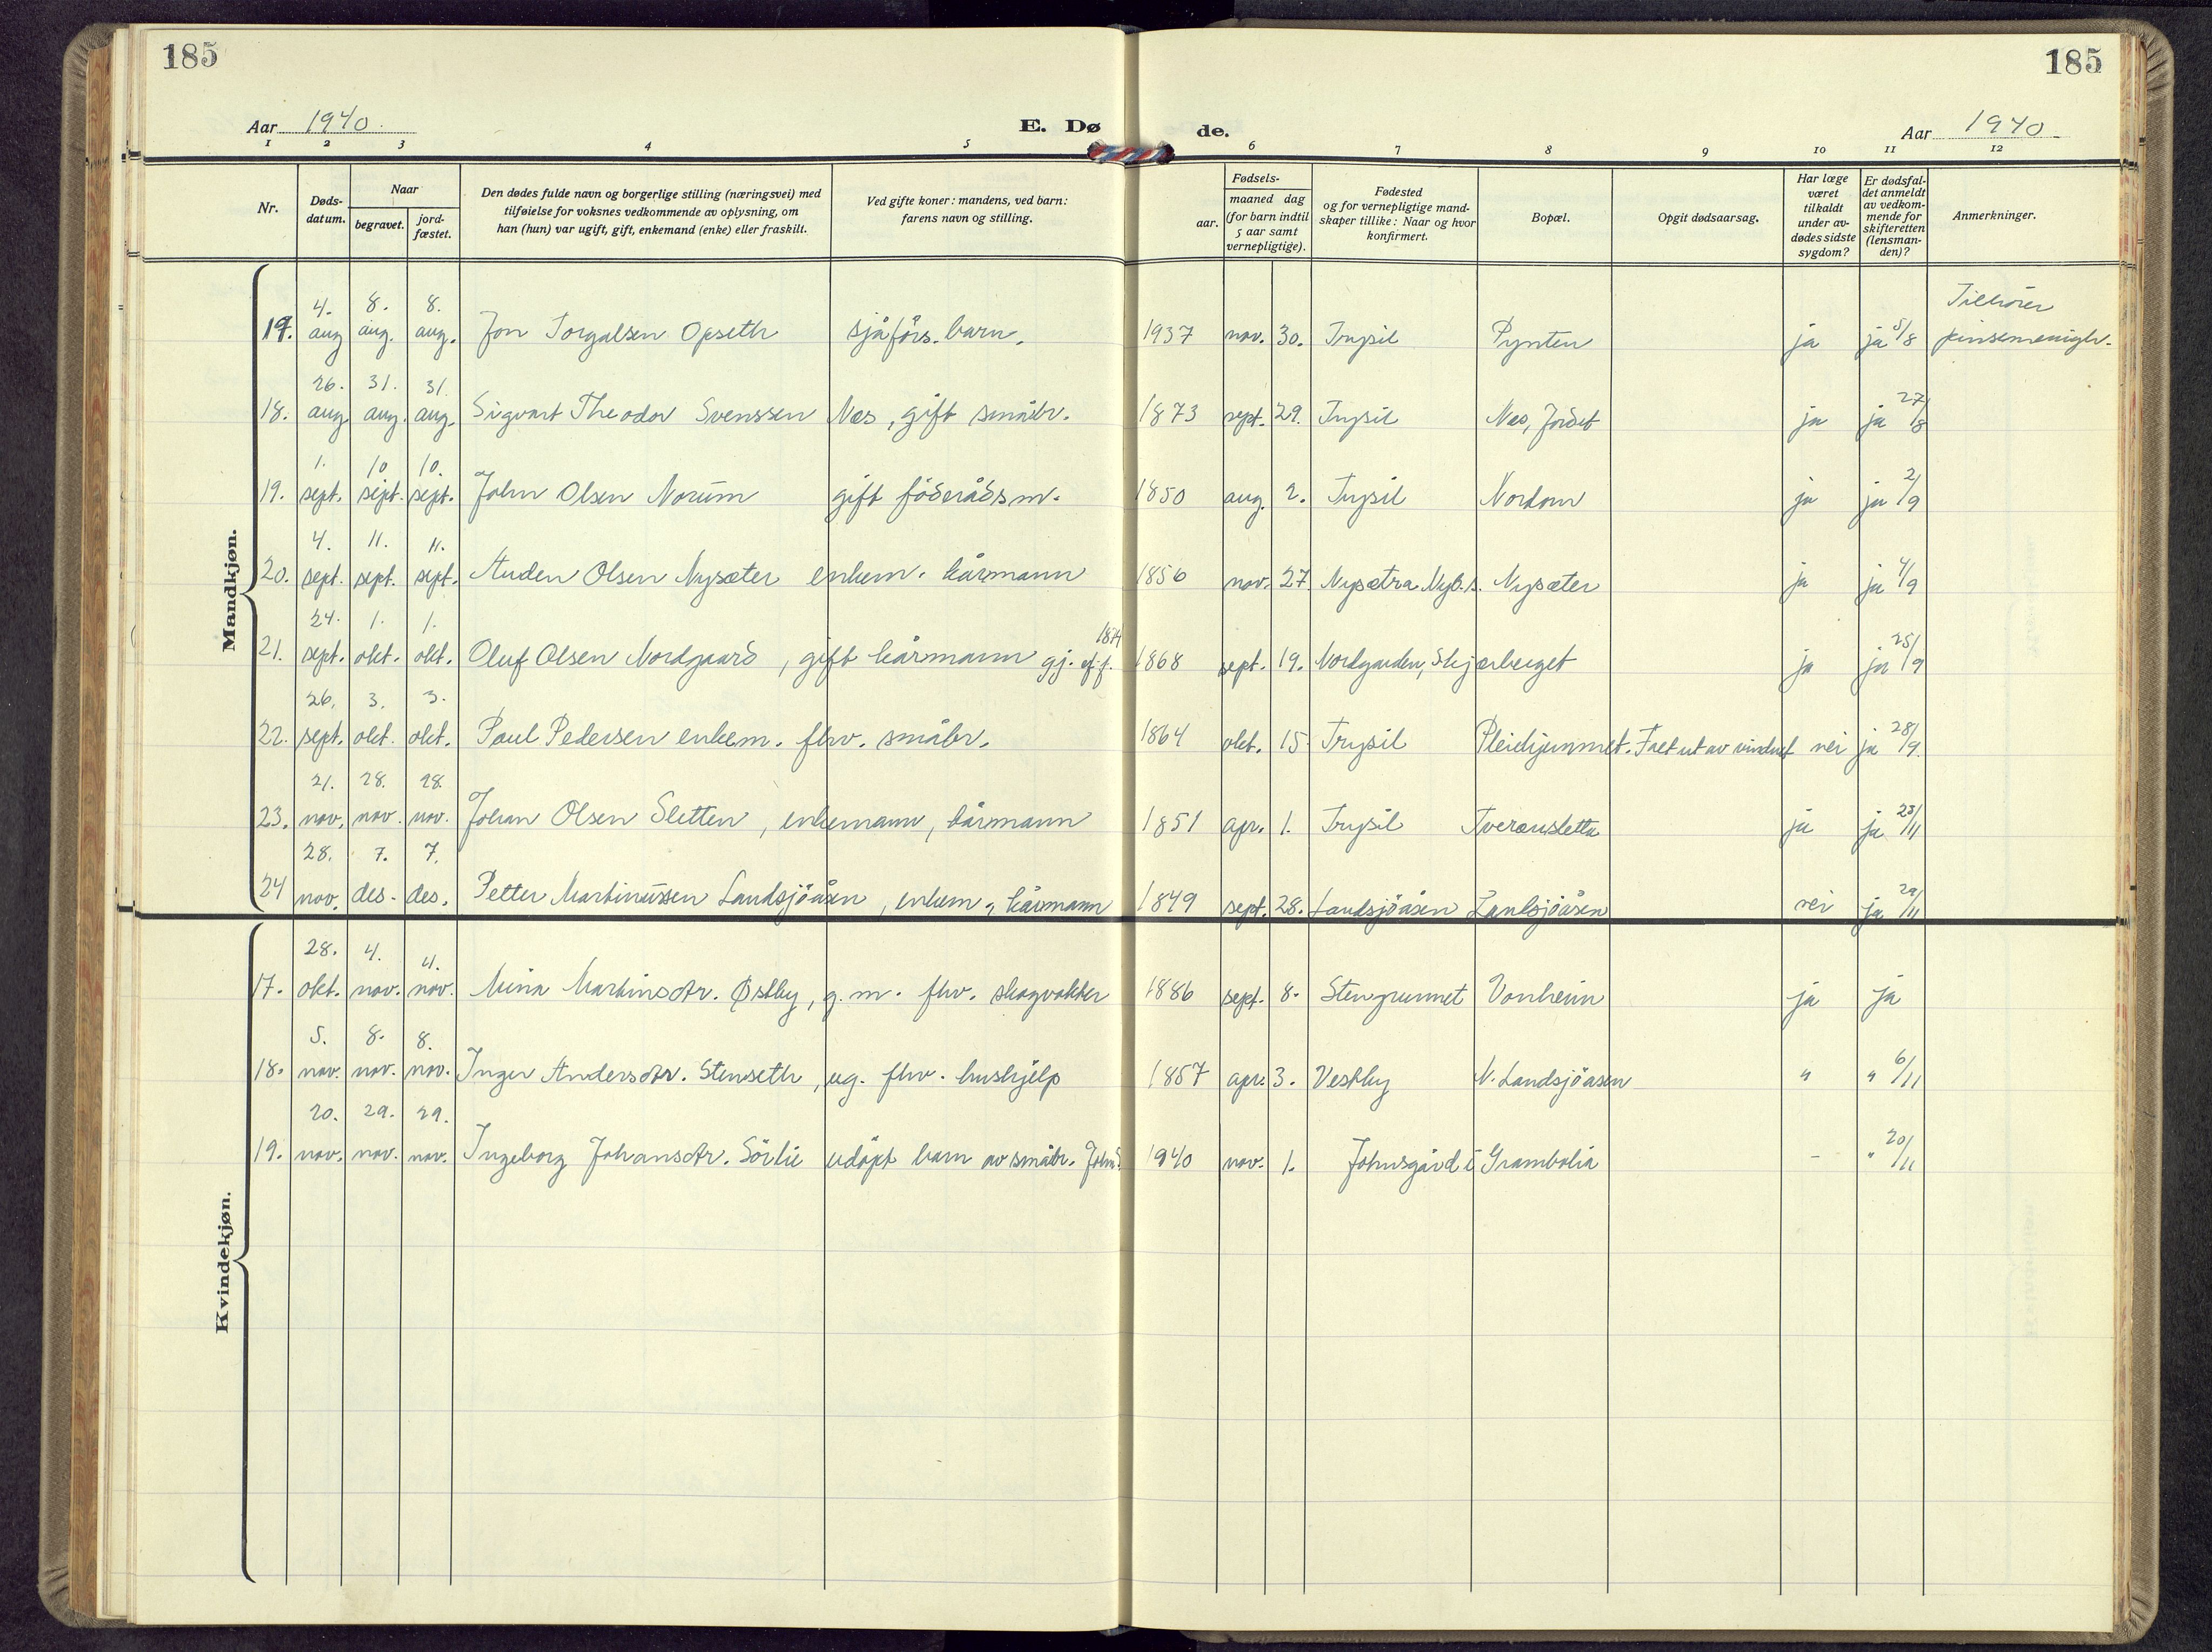 185
185
Aar 1940.
E. Dø
de.
Aar 1940
1 2 3 4 5 6 7 8 9 10 11 12
Nr.
Døds-
datum.
Naar
begravet.
jord-
fæstet.
Den dødes fulde navn og borgerlige stilling (næringsvei) med
tilføielse for voksnes vedkommende av oplysning, om
han (hun) var ugift, gift, enkemand (enke) eller fraskilt.
Ved gifte koner: mandens, ved barn:
farens navn og stilling.
Fødsels-
aar.
maaned dag
(for barn indtil
5 aar samt
vernepligtige).
Fødested
og for vernepligtige mand-
skaper tillike: Naar og hvor
konfirmert.
Bopæl.
Opgit dødsaarsag.
Har læge
været
tilkaldt
under av-
dødes sidste
sygdom?
Er dødsfal-
det anmeldt
av vedkom-
mende for
skifteretten
(lensman-
den)?
Anmerkninger.
Mandkjøn.
4. 8. 8. Tilhörer
17. aug aug. aug. Jon Torgalsen Opseth sjåförs. barn. 1937 nov. 30. Trysil Pynten ja ja 5/8 pinsemenigh.
26. 31. 31.
18. aug aug. aug. Sigvart Theodor Svenssen Næs, gift småbr. 1873 sept. 29. Trysil Næs, Jordet ja ja 27/8
1. 10 10.
19. sept. sept. sept. John Olsen Norum gift föderåds m. 1850 aug. 2. Trysil Nordom ja ja 2/9
4. 11. 11.
20. sept. sept. sept. Auden Olsen Nysæter enkem. kårmann 1856 nov. 27. Nysætra Nyb.s. Nysæter ja ja 4/9
24. 1. 1. 1874
21. sept. okt. okt. Oluf Olsen Nordgaard, gift kårmann gj. ef.f. 1868 sept. 19. Nordgarden, Skjærberget ja ja 25/9
26. 3. 3.
22. sept. okt. okt. Paul Pedersen enkem. fhv. småbr. 1864 okt. 15 Trysil Falt ut av vinduet nei ja 28/9.
21. 28. 28.
23. nov. nov. nov. Johan Olsen Sletten, enkemann, kårmann 1851 apr. 1. Trysil Tveræusletta ja ja 23/11
28. 7. 7.
24 nov. des. des. Petter Martinussen Landsjöåsen, enkem., kårmann 1849 sept. 28. Landsjöåsen Landsjöåsen nei ja 29/11
Kvindekjøn.
28. 4. 4.
17. okt. nov. nov. Mina Martinsdtr. Østby, g. m. fhv. skogvokter 1886 sept. 8. Stengrunnet Vonheim ja ja
5. 8. 8.
18. nov. nov. nov. Inger Andersdtr. Stenseth, ug. fhv. hushjelp 1857 apr. 3. Vestby N. Landsjöåsen " " 6/11
20. 29. 29.
19. nov. nov. nov. Ingeborg Johansdtr. Sörlie udöpt barn av småbr. 1940 nov. 1. Johnsgård i Grambolia - " 20/11